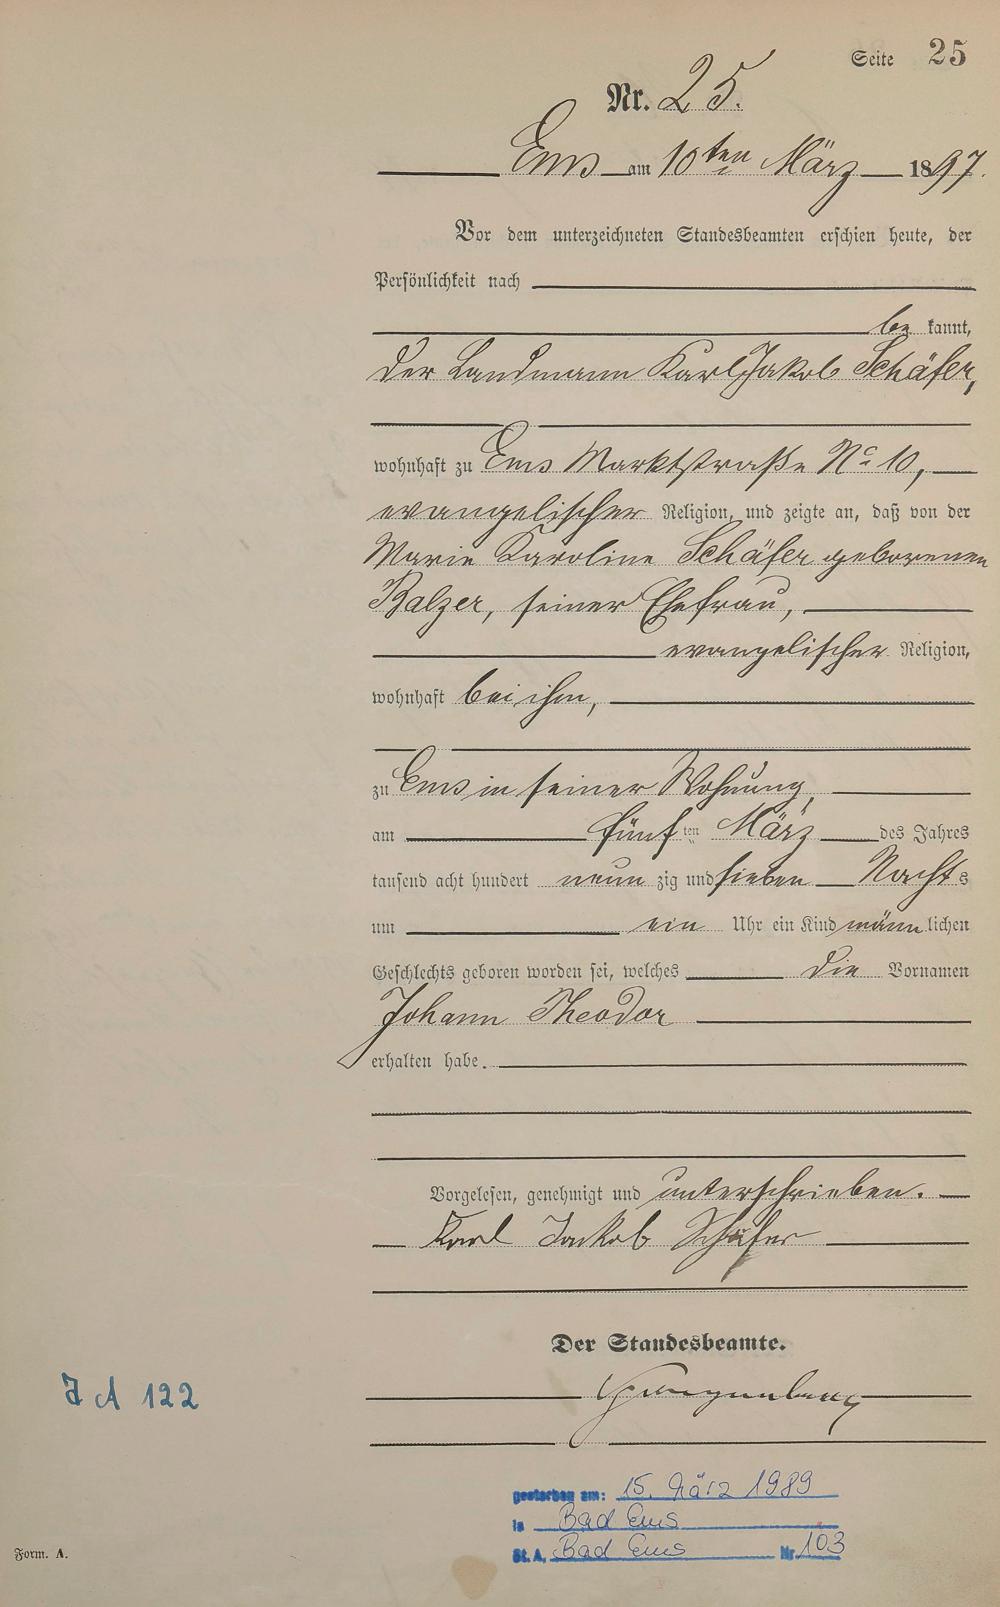 Seite 25
Nr. 25.
Ems am 10ten März 1897.
Vor dem unterzeichneten Standesbeamten erschien heute, der
Persönlichkeit nach
be kannt,
der Landmann Karl Jakob Schäfer,
wohnhaft zu Ems Marktstraße No 10,
evangelischer Religion, und zeigte an, daß von der
Marie Karoline Schäfer geborenen
Balzer, seiner Ehefrau,
evangelischer Religion,
wohnhaft bei ihm,
zu Ems in seiner Wohnung,
am fünften März des Jahres
tausend acht hundert neunzig und sieben Nachts
um ein Uhr ein Kind männlichen
Geschlechts geboren worden sei, welches die Vornamen
Johann Theodor
erhalten habe.
Vorgelesen, genehmigt und unterschrieben.
Karl Jakob Schäfer
Der Standesbeamte.
J A 122
gestorben am: 15. März 1989
in Bad Ems
St. A. Bad Ems Nr. 103
Form. A.